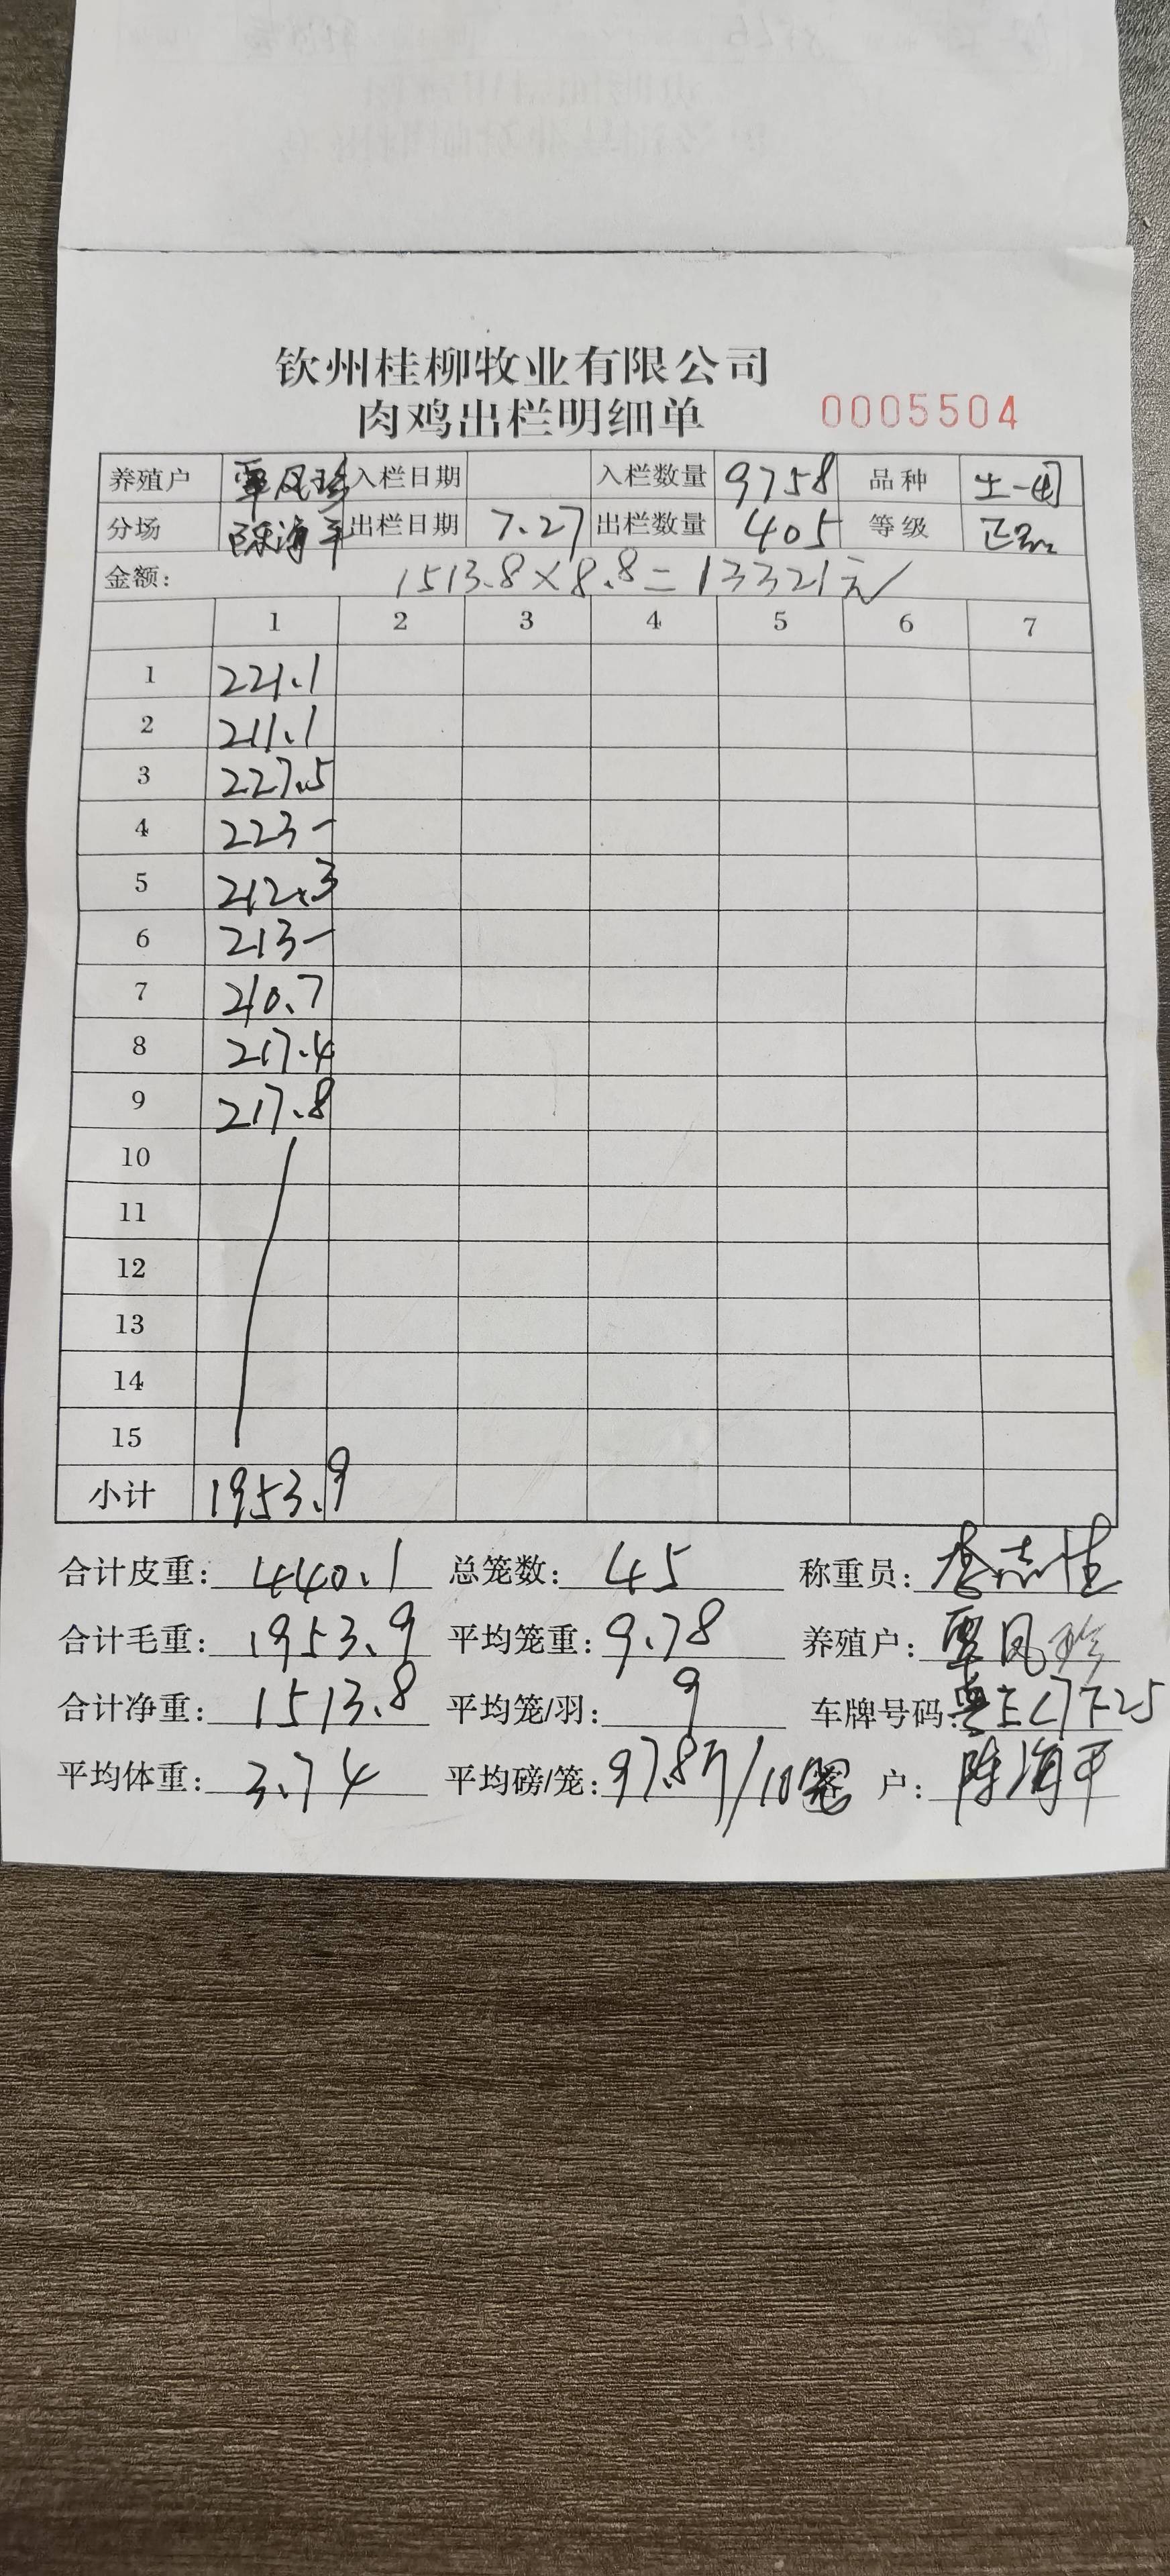 钦州桂柳牧业有限公司
肉鸡出栏明细单 0005504
养殖户 覃凤珍 入栏日期 入栏数量 9758 品种 土一
分场 陈海平 出栏日期 7.27 出栏数量 405 等级 正品
金额: 1513.8×8.8=13321元
1 2 3 4 5 6 7
1 221.1
2 211.1
3 227.5
4 223-
5 212.3
6 213-
7 210.7
8 217.4
9 217.8
10
11
12
13
14
15
小计 1953.9
合计皮重: 440.1 总笼数: 45 称重员: 志
合计毛重: 1953.9 平均笼重: 9.78 养殖户: 覃凤珍
合计净重: 1513.8 平均笼/羽: 9 车牌号码:
平均体重: 3.74 平均磅/笼: 97.8斤/10 户: 陈海平